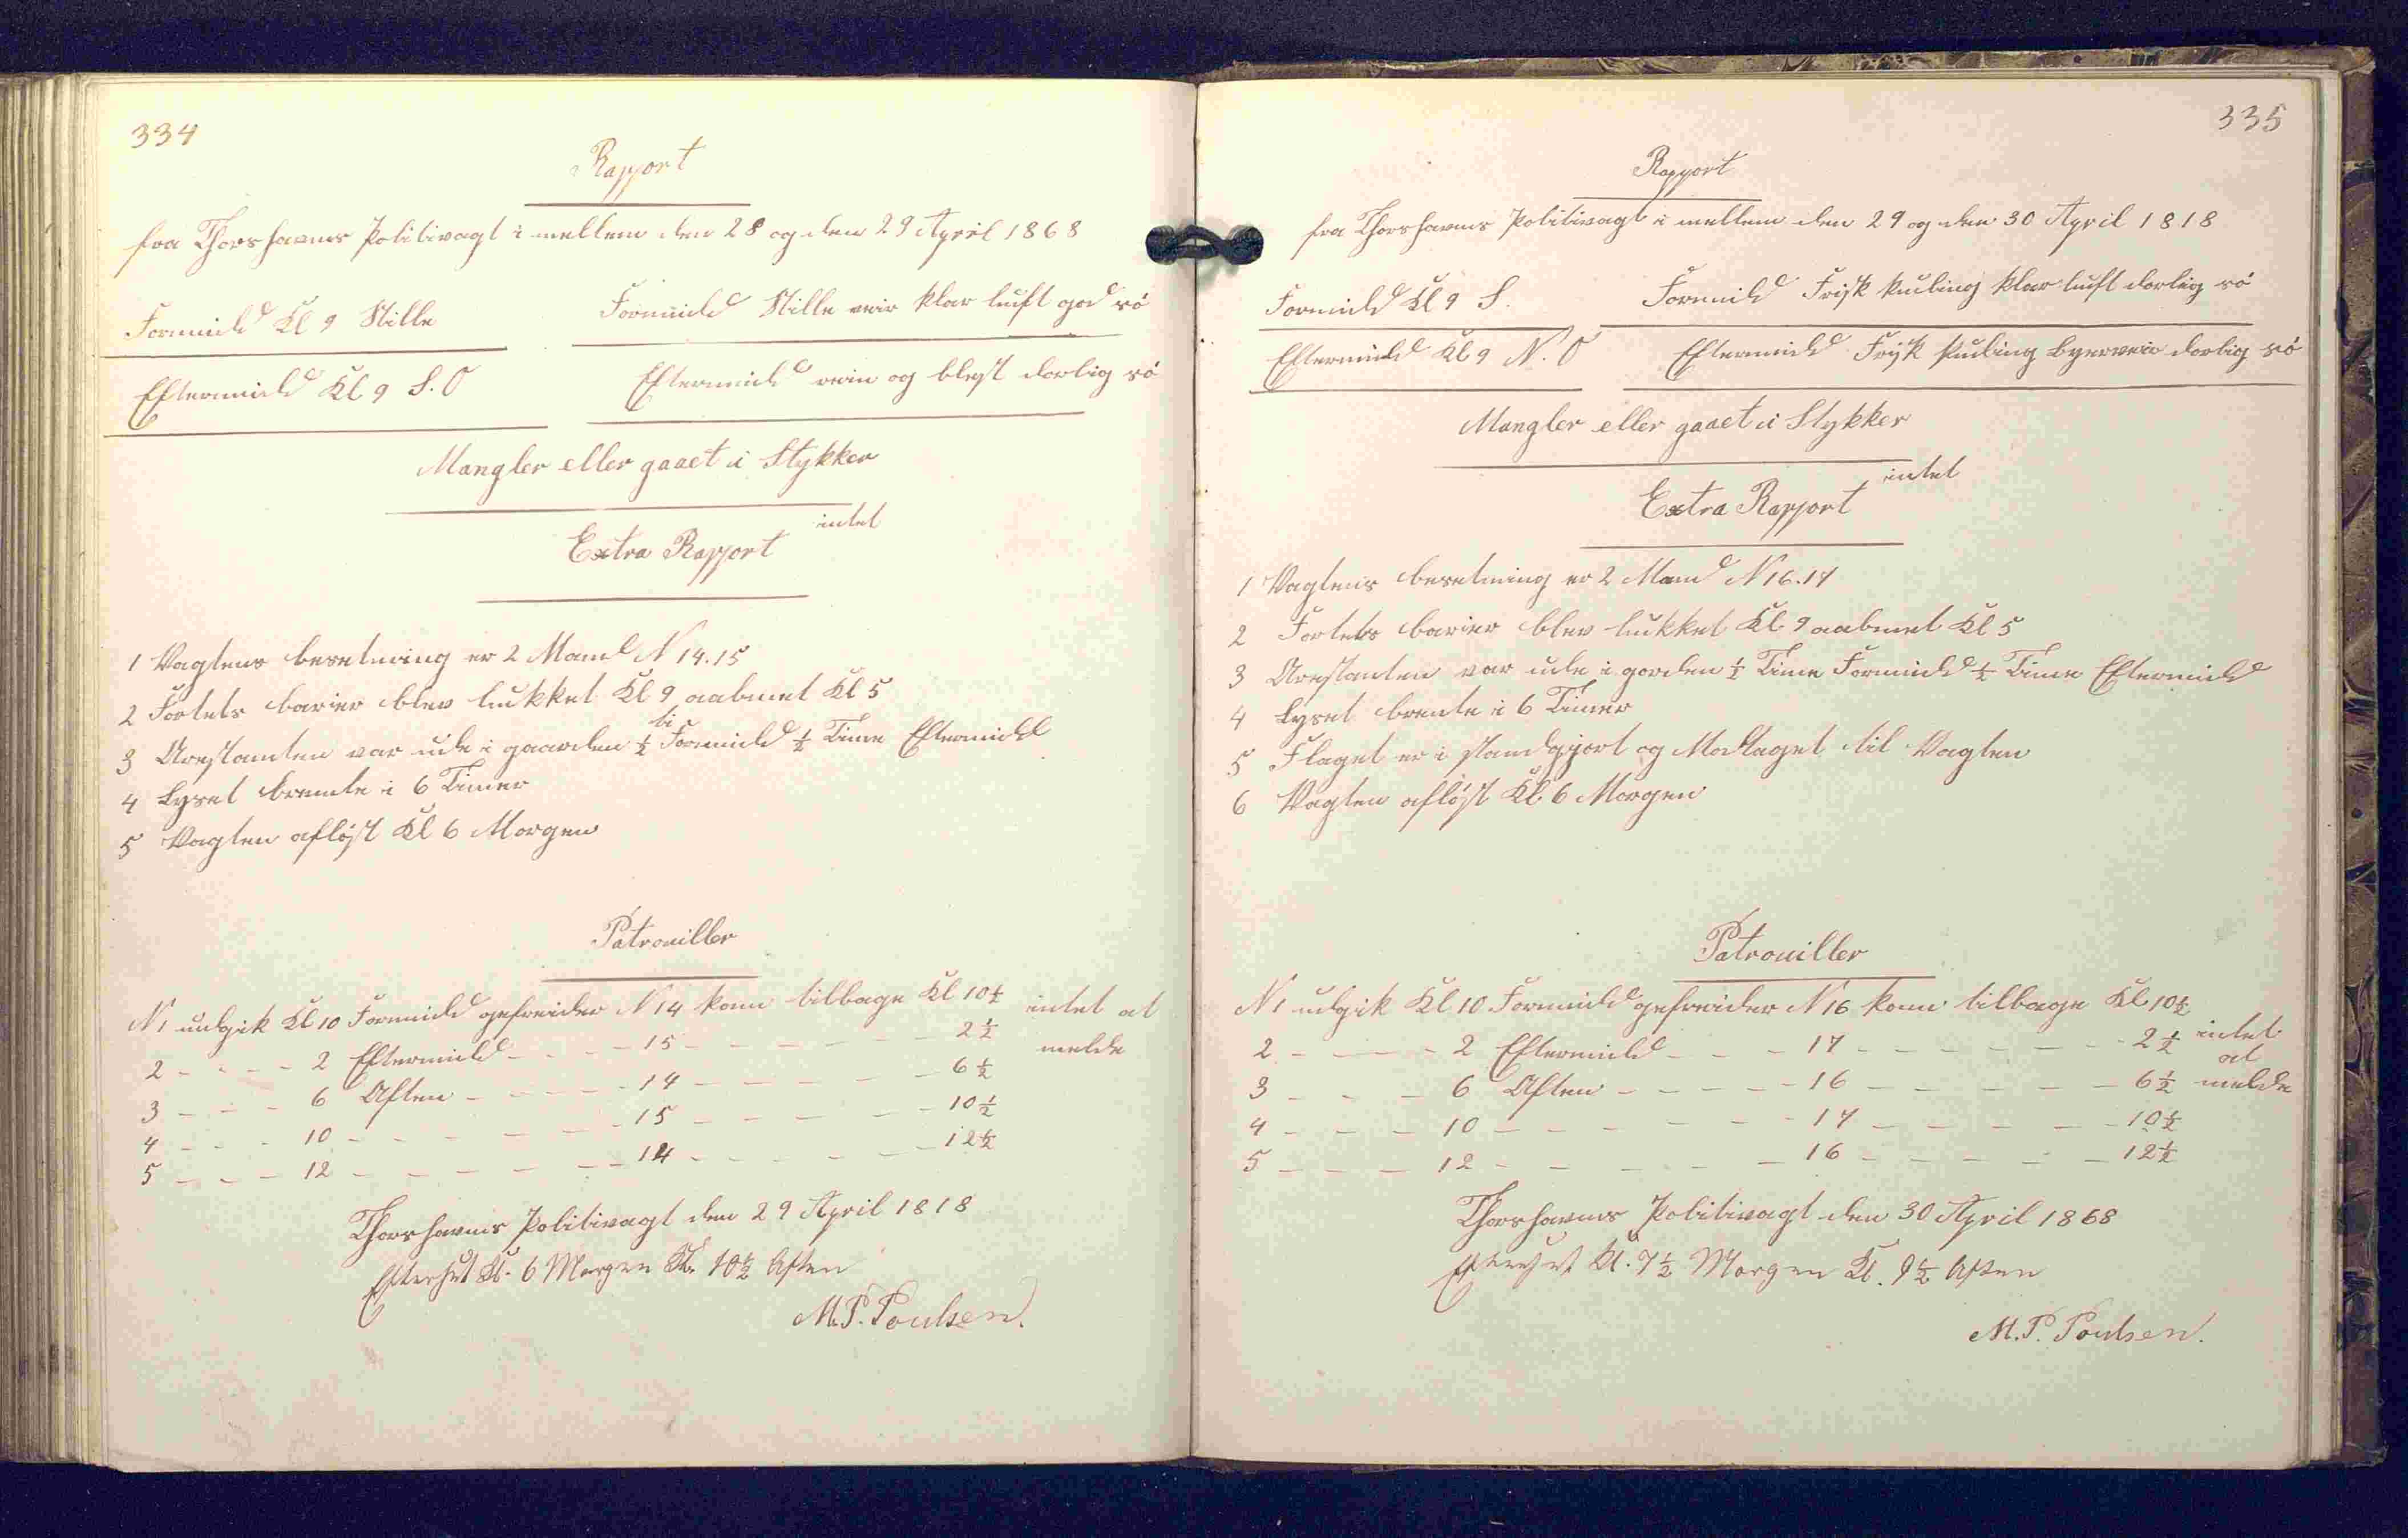 334
Rapport
fra Thorshavns Politivagt i mellem den 28 og den 29 April 1868
Formidd Kl 9 Stille
Formidd Stille veir klar luft god sö
Eftermidd Kl 9 S. O
Eftermidd rein og blest dorlig sö
Mangler eller gaaet i Stykker
intet
Extra Rapport
1 Vagtens besetning er 2 Mand N 14.15
2 Fortets barier blev lukket Kl 9 aabnet Kl 5
3 Arestanten var ude i gaarden ½ ti Formidd ½ Time Eftermidd
4 Lyset brente i 6 Timer
5 Vagten aflöst Kl 6 Morgen
Patrouiller
N 1 udgik Kl 10 Formidd gefreider N 14 kom tilbage Kl 10½ intet at
2 - - - - 2 Eftermidd - - - 15 - - - - - - 2½ melde
3 - - - 6 Aften - - - - 14 - - - - - 6½
4 - - - 10 - - - - - - 15 - - - - - 10½
5 - - - 12 - - - - - - 14 - - - - - 12½
Thorshavns Politivagt den 29 April 1818
Efterset Kl. 6 Morgen Kl. 10½ Aften
M. P. Poulsen.
335
Rapport
fra Thorshavns Politivagt i mellem den 29 og den 30 April 1818
Formidd Kl 9 S.
Formidd Frisk kuling klar luft dorlig sö
Eftermidd Kl 9 N. O
Eftermidd Frisk kuling byerveir dorlig sö
Mangler eller gaaet i Stykker
intet
Extra Rapport
1 Vagtens besetning er 2 Mand N 16.17
2 Fortets barier blev lukket Kl 9 aabnet Kl 5
3 Arestanten var ude i gorden ½ Time Formidd ½ Time Eftermidd
4 Lyset brente i 6 Timer
5 Flaget er i standgjort og Modtaget til Vagten
6 Vagten aflöst Kl 6 Morgen
Patrouiller
N 1 udgik Kl 10 Formidd gefreider N 16 kom tilbage Kl 10½
2 - - - - 2 Eftermidd - - - 17 - - - - - - 2½ intet at
3 - - - 6 Aften - - - - - 16 - - - - - 6½ melde
4 - - - 10 - - - - - - 17 - - - - - 10½
5 - - - 12 - - - - - - 16 - - - - - 12½
Thorshavns Politivagt den 30 April 1868
Efterset Kl. 7½ Morgen Kl. 9½ Aften
M. P. Poulsen.